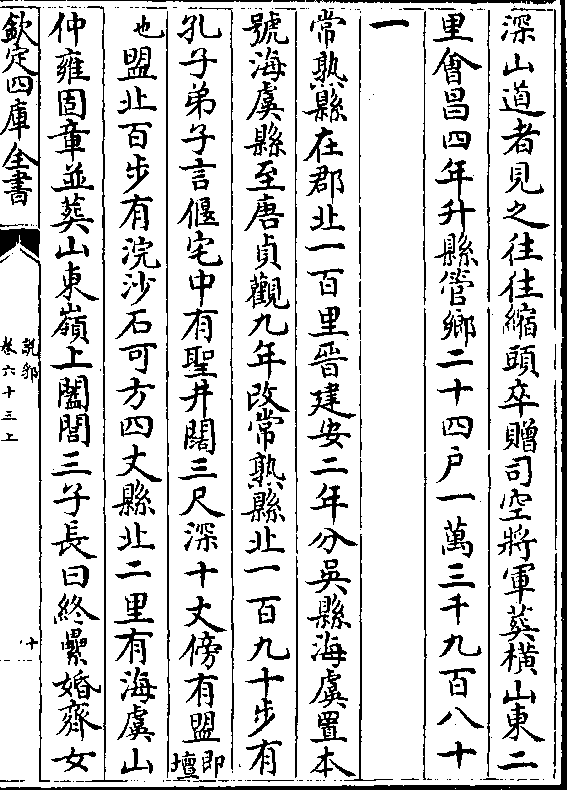 深山道者見之往往縮頭卒贈司空將軍葬橫山東二
里會昌四年升縣管鄉二十四户一萬三千九百八十
一
常熟縣在郡北一百里晉建安二年分吳縣海虞置本
號海虞縣至唐貞觀九年改常熟縣北一百九十步有
孔子弟子言偃宅中有聖井闊三尺深十丈傍有盟即壇
也盟北百步有浣沙石可方四丈縣北二里有海虞山
仲雍固章並葬山東嶺上闔閭三子長曰終纍婚齊女
欽定四庫全書
說郛
卷六十三上
十